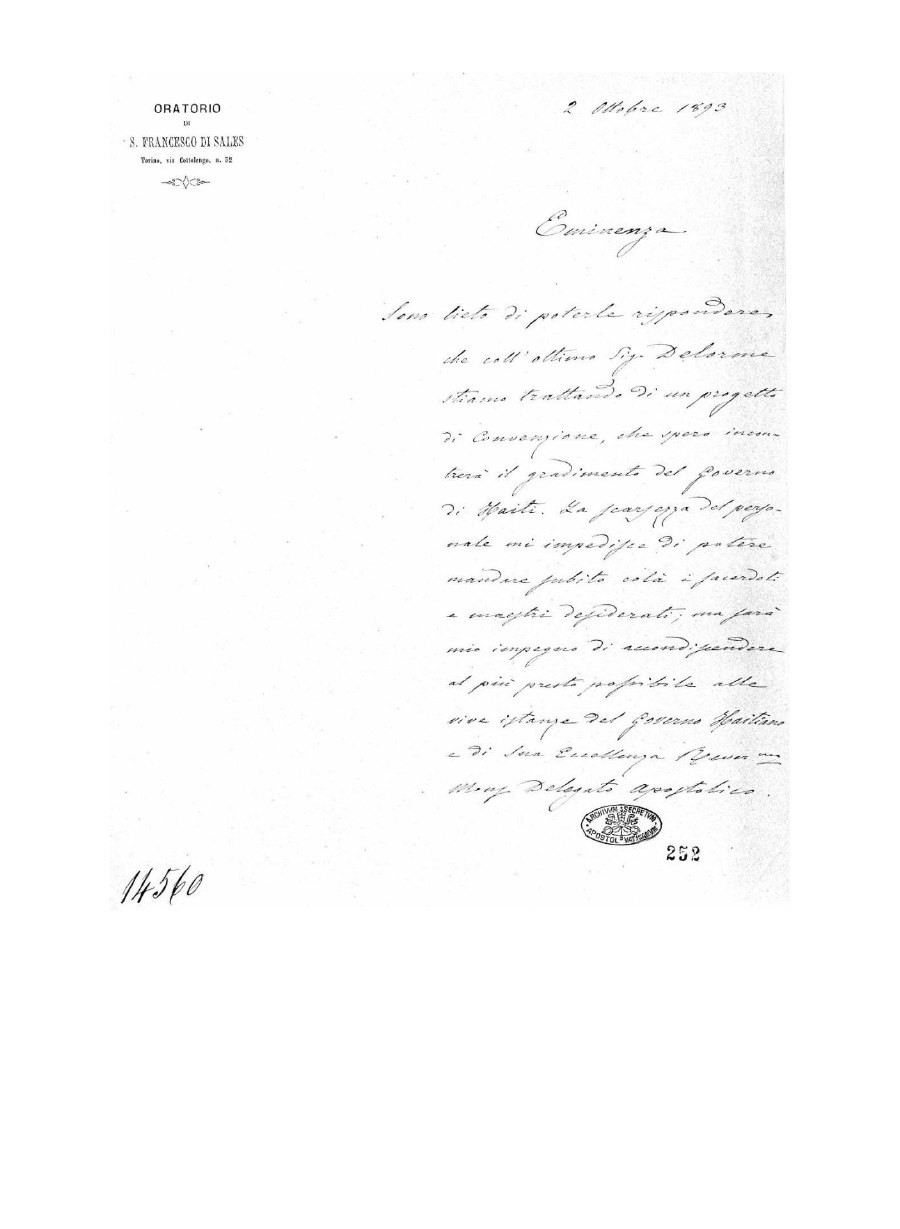 ORATORIO
DI
S. FRANCESCO DI SALES
Torino, via Cottolengo, n. 32
2 Ottobre 1893
Eminenza
Sono lieto di poterle rispondere,
che coll' ottimo Sig. Delorme
stiamo trattando di un progetto
di Convenzione, che spero incon-
trerà il gradimento del Governo
di Haiti. La scarsezza del perso-
nale mi impedisce di potere
mandare subito colà i sacerdoti
e maestri desiderati; ma sarà
mio impegno di accondiscendere
al più presto possibile alle
vive istanze del Governo Haitiano
e di Sua Eccellenza Rever.ma
Mons Delegato Apostolico.
ARCHIVUM SECRETVM
APOSTOL. VATICANVM
252
14560